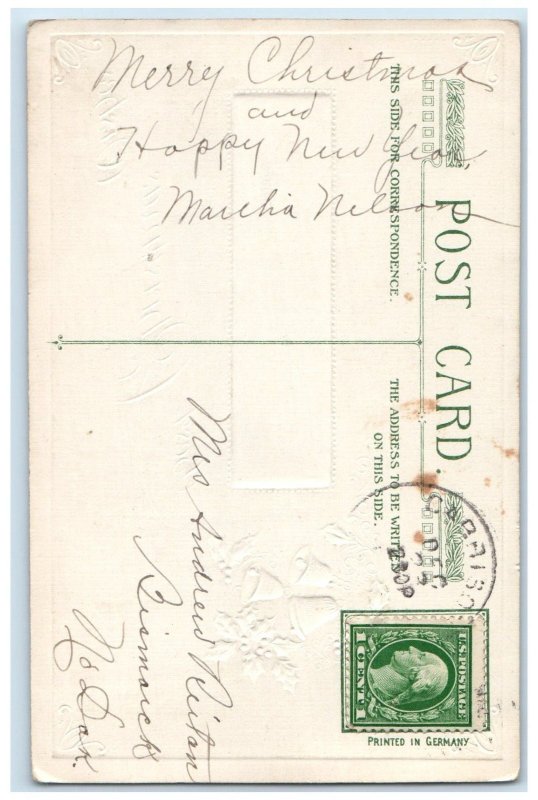 Merry Christmas
and
Happy New Year,
Martha Nelson
THIS SIDE FOR CORRESPONDENCE.
POST CARD.
THE ADDRESS TO BE WRITTEN
ON THIS SIDE.
Mrs Andrew
Bismarck
No Dak.
DEC
U.S. POSTAGE
1 CENT 1
PRINTED IN GERMANY